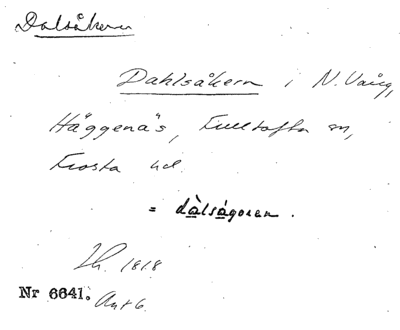 Dalsåkern
Dahlsåkern i N. Vång,
Häggenäs, Fulltofta sn,
Frosta hd.
= dàlságoren.
Lh. 1818
Nr 6641. Ant 6